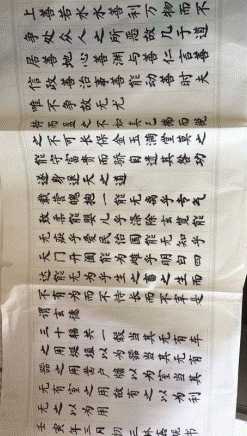 上善若水水善利万物而不
争处众人之所恶故几于道
居善地心善渊与善仁言善
信政善治事善能动善时夫
唯不争故无尤
持而盈之不如其已揣而锐
之不可长保金玉满堂莫之
能守富贵而骄自遗其咎功
遂身退天之道
载营魄抱一能无离乎专气
致柔能婴儿乎涤除玄览能
无疵乎爱民治国能无知乎
天门开阖能为雌乎明白四
达能无为乎生之畜之生而
不有为而不恃长而不宰是
谓玄德
三十辐共一毂当其无有车
之用埏埴以为器当其无有
器之用凿户牖以为室当其
无有室之用故有之以为利
无之以为用
壬寅年三月初三林书